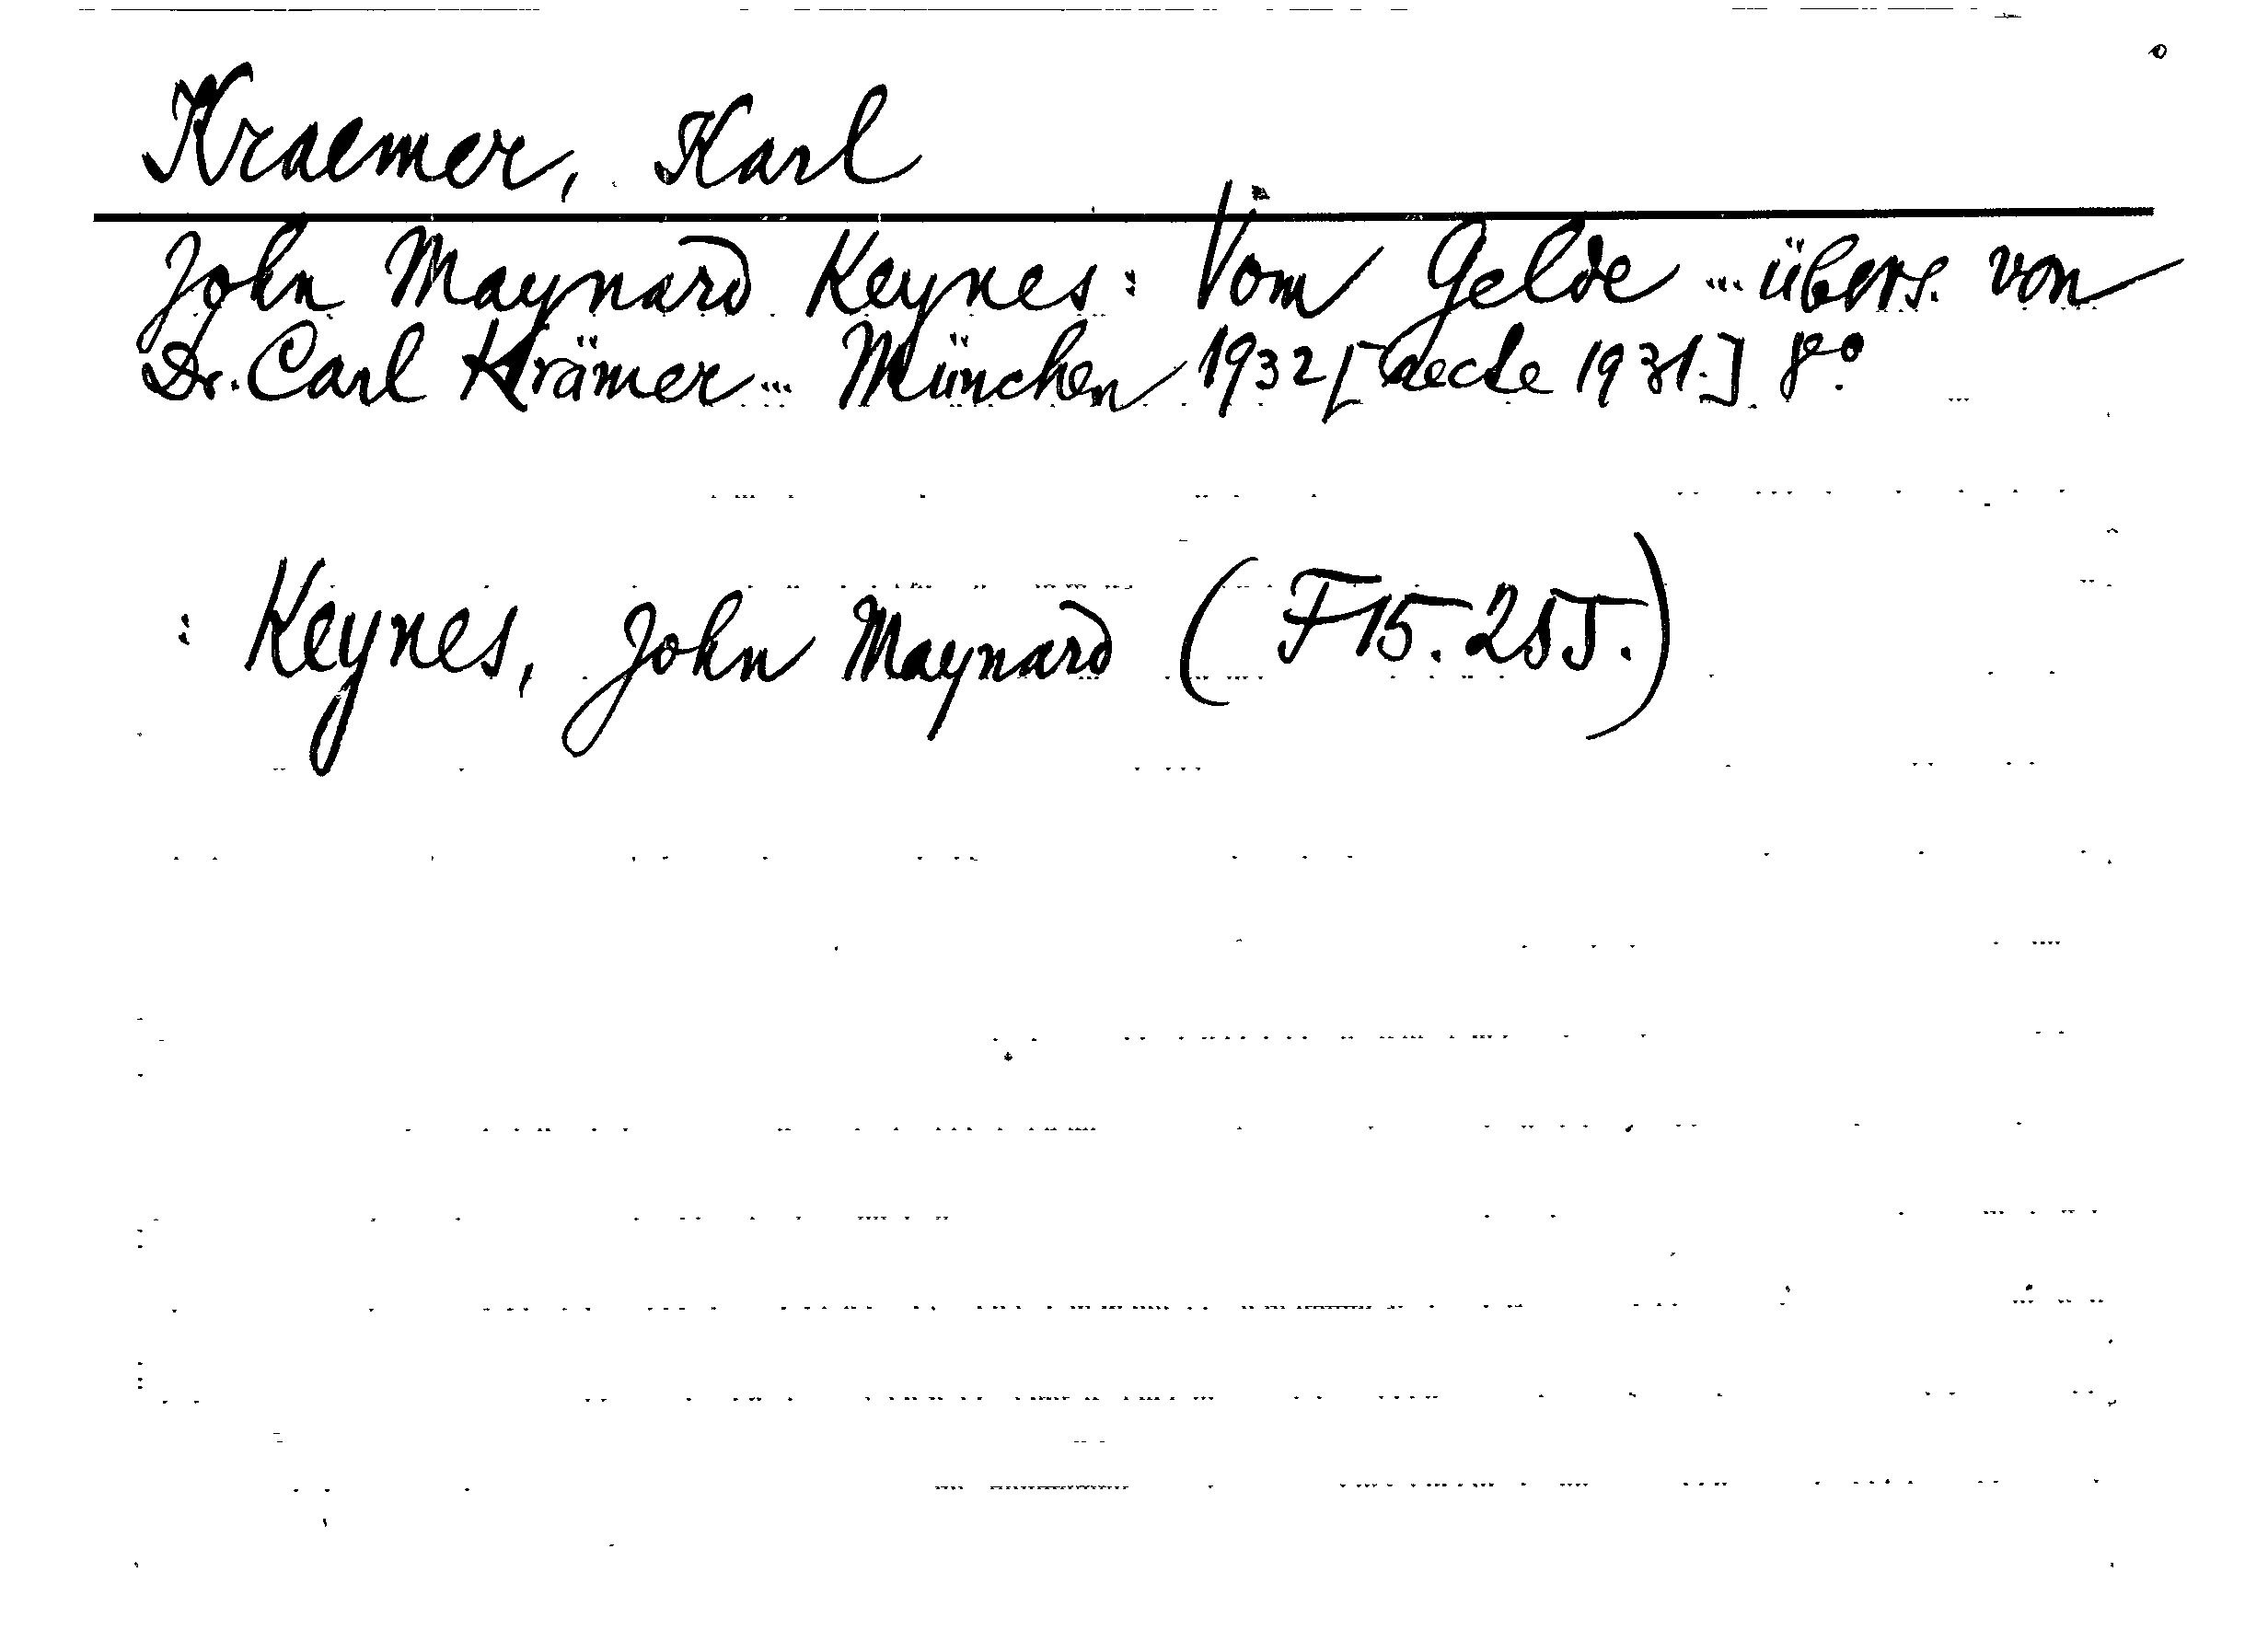 Kraemer, Karl
John Maynard Keynes: Vom Gelde ... übers. von
Dr. Carl Krämer ... München 1932 [recte 1931.] 8°.
: Keynes, John Maynard (F 15. 255.)